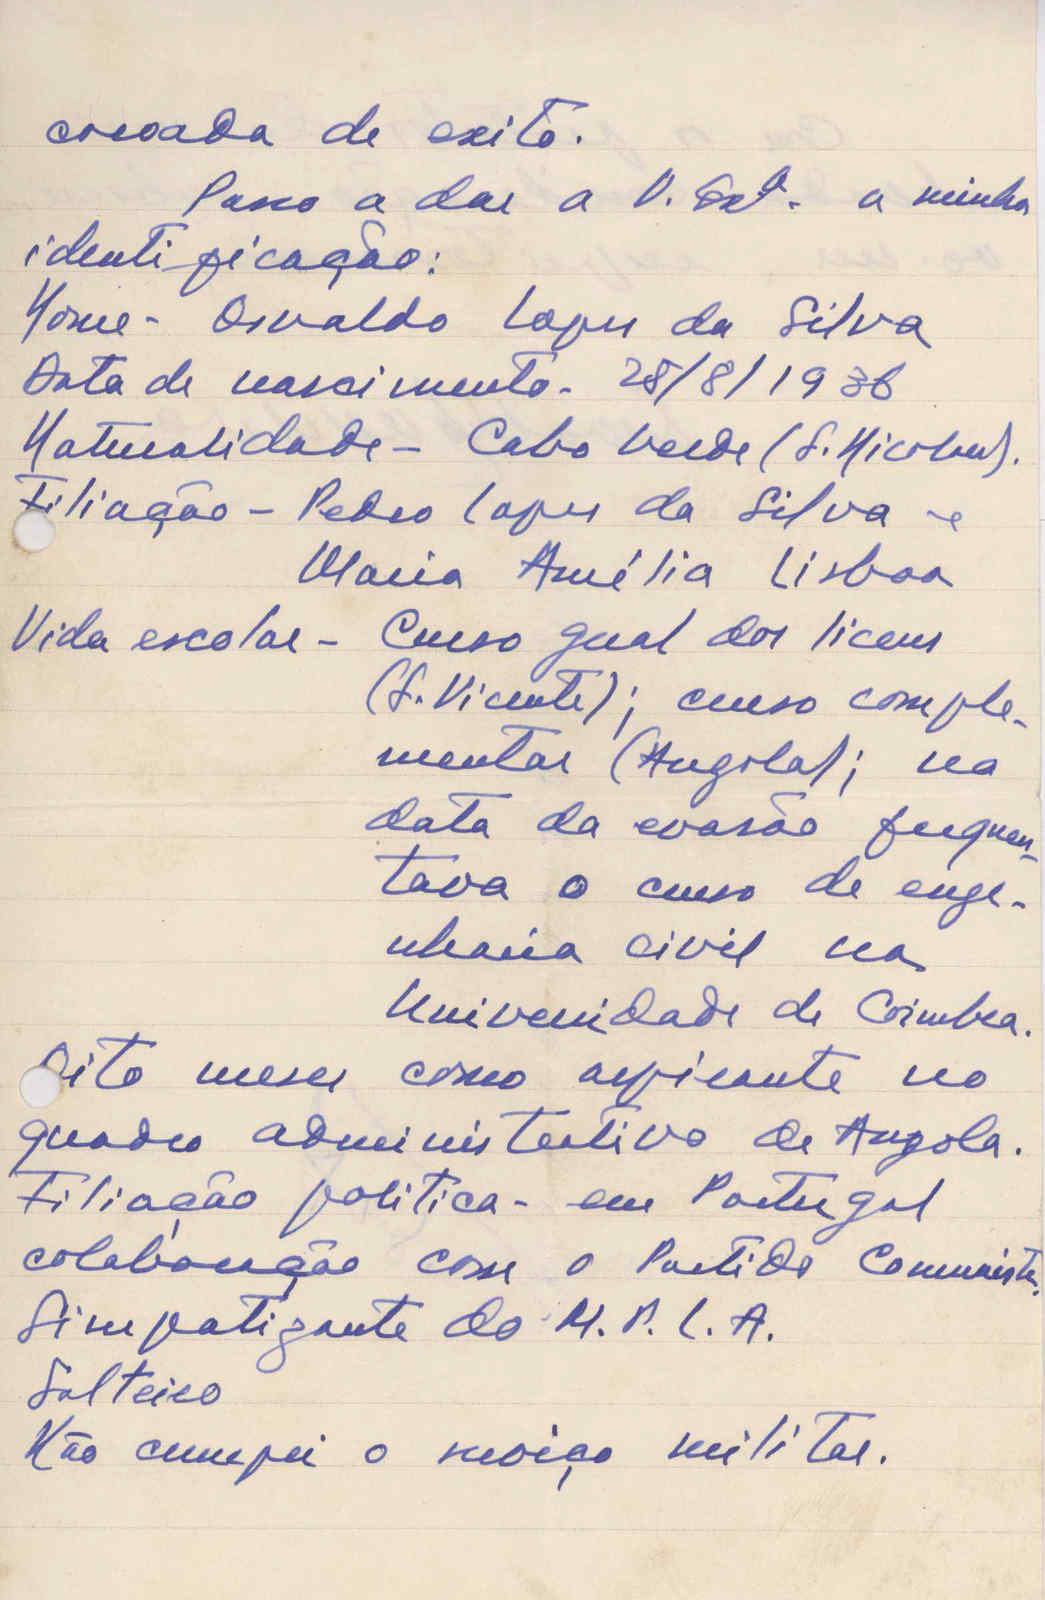 coroada de exito.
Passo a dar a V. Exª. a minha
identificação:
Nome - Osvaldo Lopes da Silva
Data de nascimento - 28/8/1936
Naturalidade - Cabo Verde (S. Nicolau).
Filiação - Pedro Lopes da Silva e
Maria Amélia Lisboa
Vida escolar - Curso geral dos liceus
(S. Vicente); curso comple-
mentar (Angola); na
data da evasão frequen-
tava o curso de enge-
nharia civil na
Universidade de Coimbra.
Oito meses como aspirante no
quadro administrativo de Angola.
Filiação politica - em Portugal
colaboração com o Partido Comunista.
Simpatizante do M.P.L.A.
Solteiro
Não cumpri o serviço militar.